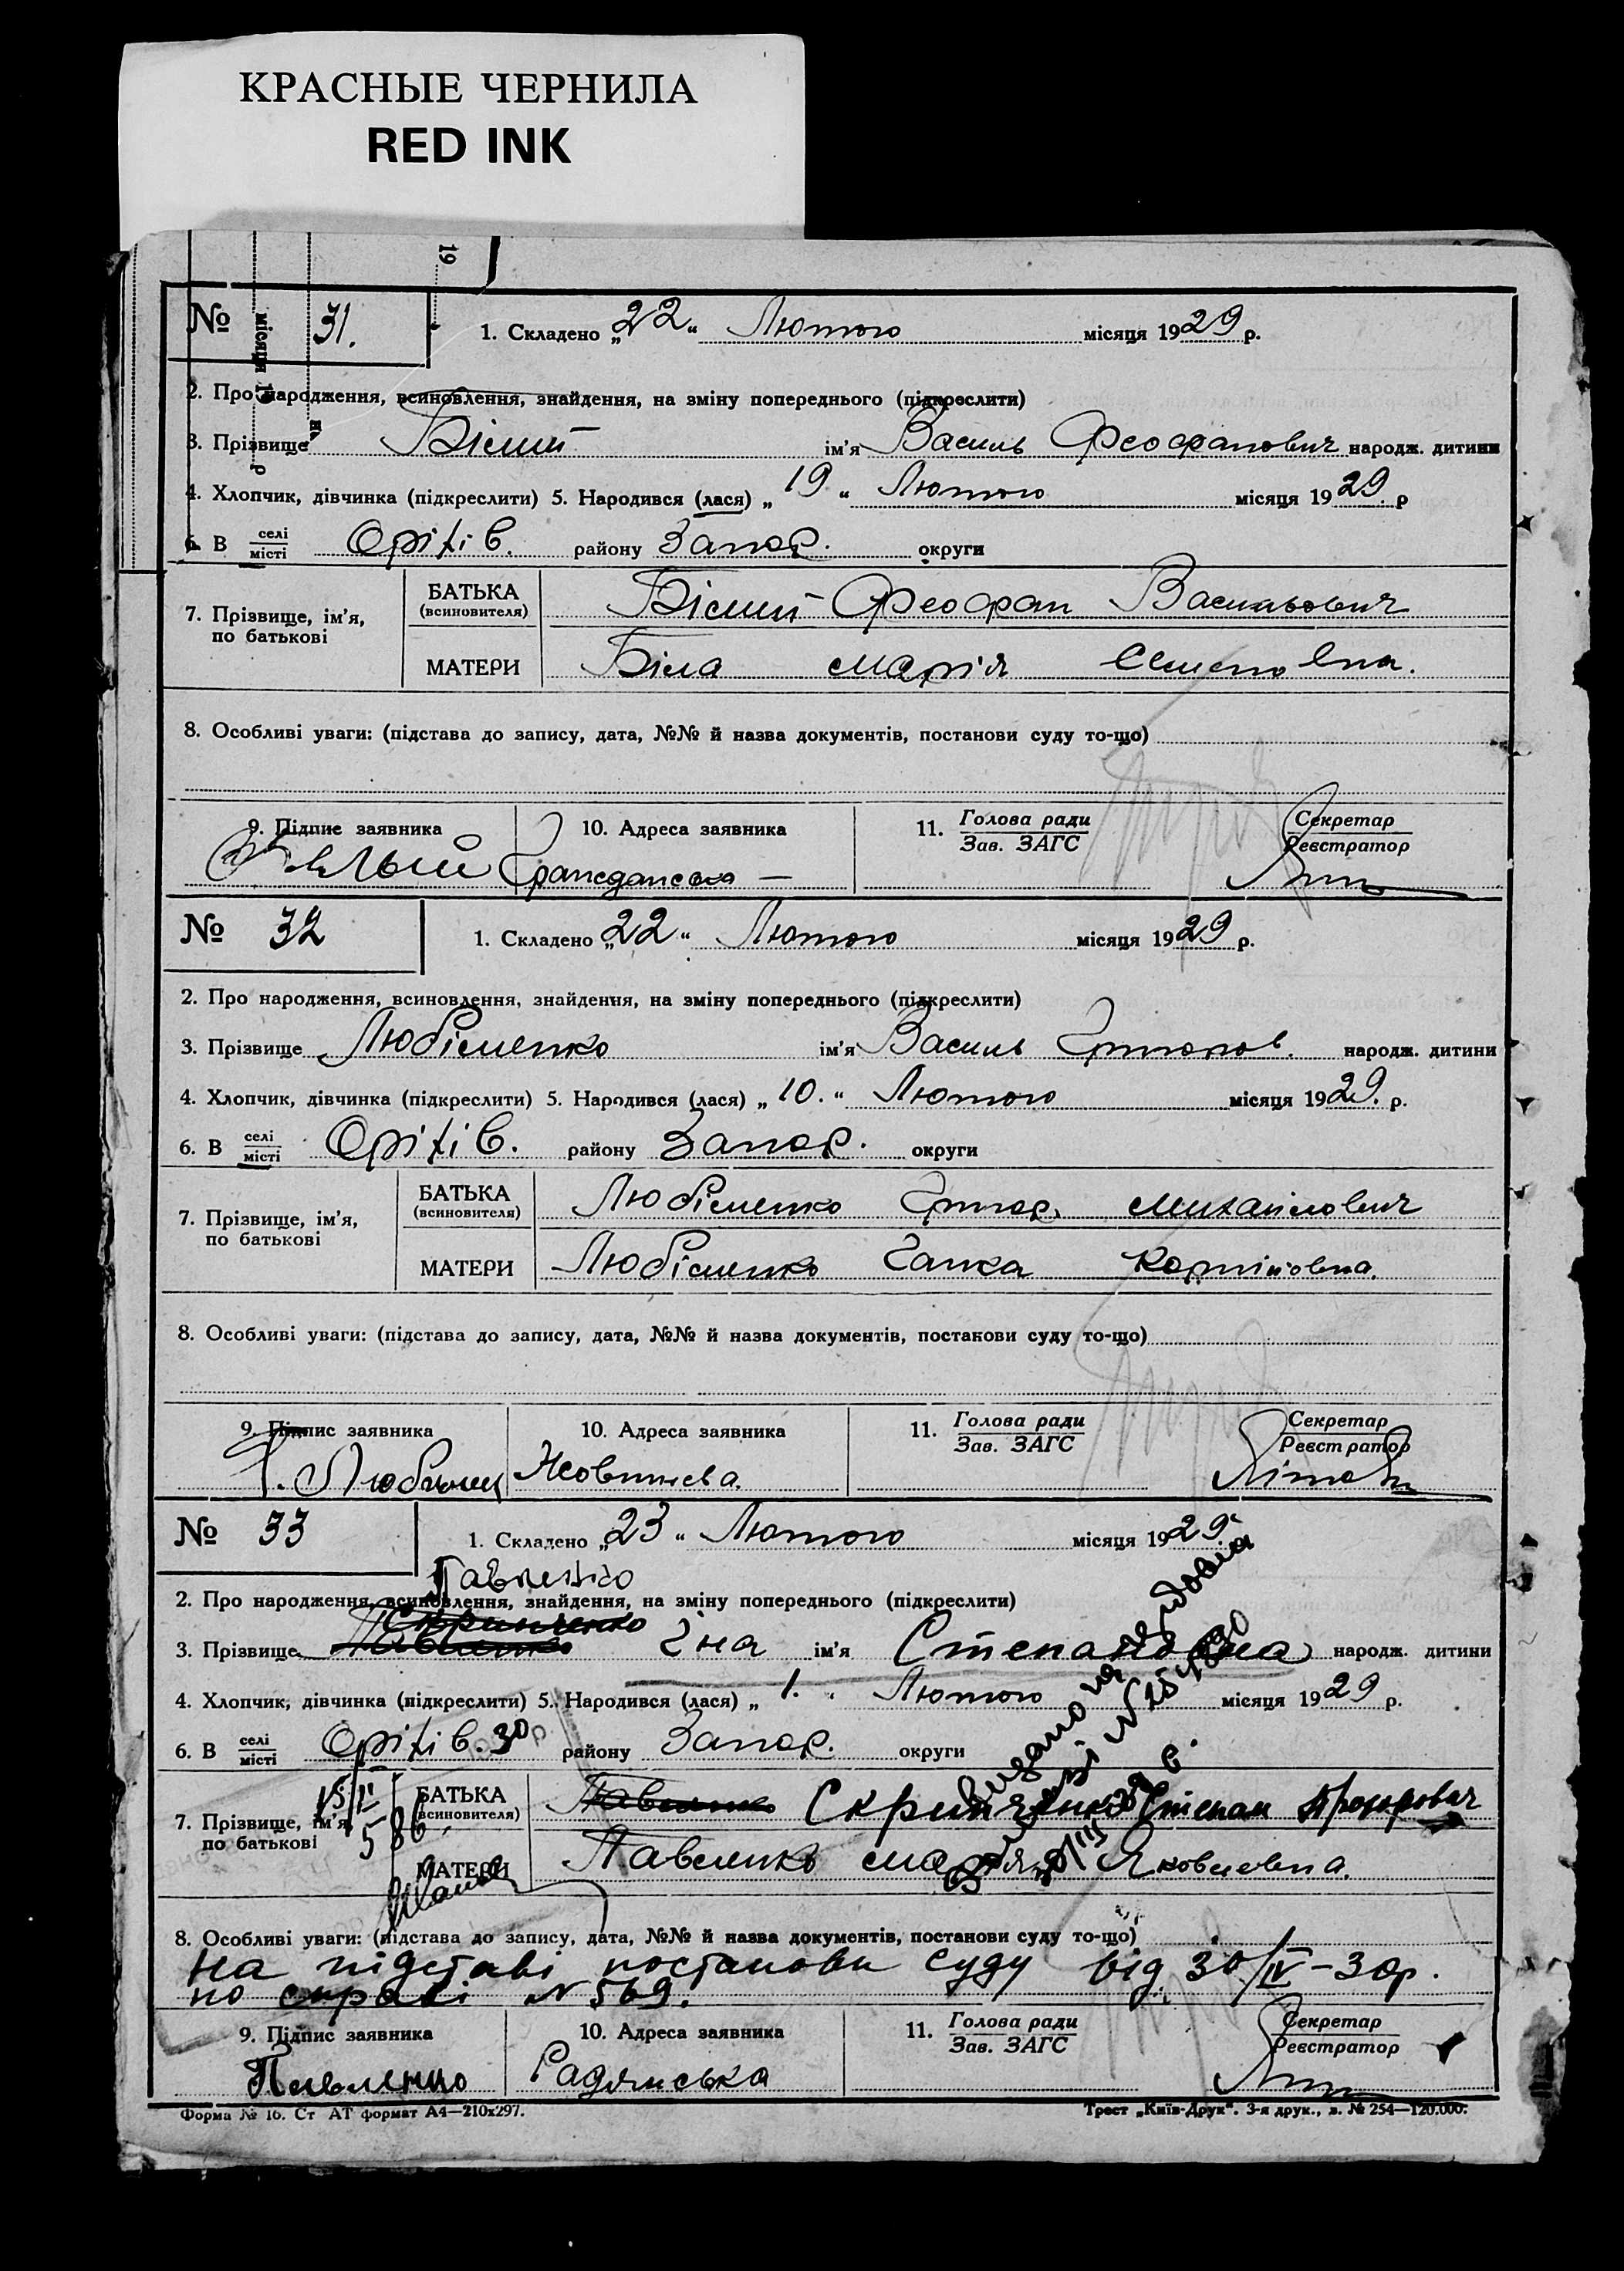 КРАСНЫЕ ЧЕРНИЛА
RED INK
19
місяця 19 р
№ 31.
1. Складено „22“ Лютого місяця 1929 р.
2. Про народження, всиновлення, знайдення, на зміну попереднього (підкреслити)
3. Прізвище Білий ім'я Василь Феофанович народж. дитини
4. Хлопчик, дівчинка (підкреслити) 5. Народився (лася) „19“ Лютого місяця 1929. р
6. В селі місті Оріхів. району Запор. округи
7. Прізвище, ім'я, по батькові
БАТЬКА (всиновителя) Білий Феофан Васильович
МАТЕРИ Біла Марія Семеновна.
8. Особливі уваги: (підстава до запису, дата, №№ й назва документів, постанови суду то-що)
9. Підпис заявника 10. Адреса заявника 11. Голова ради Зав. ЗАГС Секретар Реєстратор
Белый Гражданська —
№ 32
1. Складено „22“ Лютого місяця 1929 р.
2. Про народження, всиновлення, знайдення, на зміну попереднього (підкреслити)
3. Прізвище Любименко ім'я Василь Григоров. народж. дитини
4. Хлопчик, дівчинка (підкреслити) 5. Народився (лася) „10.“ Лютого місяця 1929. р.
6. В селі місті Оріхів. району Запор. округи
7. Прізвище, ім'я, по батькові
БАТЬКА (всиновителя) Любименко Григор. Михайлович
МАТЕРИ Любименко Ганка Корніїовна.
8. Особливі уваги: (підстава до запису, дата, №№ й назва документів, постанови суду то-що)
9. Підпис заявника 10. Адреса заявника 11. Голова ради Зав. ЗАГС Секретар Реєстратор
№ 33
1. Складено „23“ Лютого місяця 1929.
Павленко
2. Про народження, всиновлення, знайдення, на зміну попереднього (підкреслити)
Скрипченко
3. Прізвище Павленко Їна ім'я Степановна народж. дитини
4. Хлопчик, дівчинка (підкреслити) 5. Народився (лася) „1.“ Лютого місяця 1929 р.
6. В селі місті Оріхів. району Запор. округи
7. Прізвище, ім'я, по батькові
БАТЬКА (всиновителя) Павленко Скрипченко Степан Прохорович
МАТЕРИ Павленко Марія Яковлевна.
8. Особливі уваги: (підстава до запису, дата, №№ й назва документів, постанови суду то-що)
На підставі постанови суду від 30/IV-30р.
по справі № 569.
9. Підпис заявника 10. Адреса заявника 11. Голова ради Зав. ЗАГС Секретар Реєстратор
Павленко Радянська
Форма № 16. Ст АТ формат А4—210x297.
Трест „Київ-Друк“. 3-я друк., з. № 254—120.000.